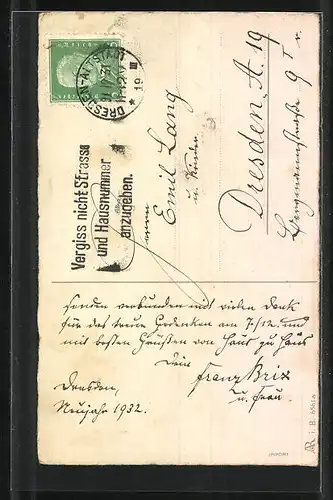 DRESDEN-ALTSTADT
* 19 III
Vergiss nicht Strasse
und Hausnummer
anzugeben.
Herrn
Emil Lang
u. Kinder
Dresden A. 19
Bergmannstrasse 9 I r.
senden verbunden mit vielen Dank
für das treue Gedenken am 7/12. und
mit besten Grüssen von Haus zu Haus
Dein
Franz Brix
u. Frau.
Dresden,
Neujahr 1932.